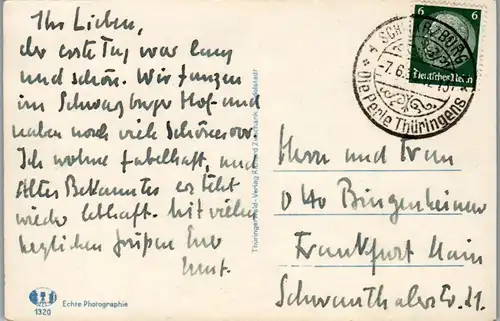 Ihr Lieben,
der erste Tag war lang
und schön. Wir tanzen
im Schwarzburger Hof und
haben noch viel Schönes vor.
Ich wohne fabelhaft, und
Altes Bekanntes ersteht
wieder lebhaft. Mit vielen
herzlichen Grüßen Euer
Ernst.
Echte Photographie
1320
Thüringenwald-Verlag
6 6
Deutsches Reich
-7.6.
Die Perle Thüringens
Herrn und Frau
Otto Bingenheimer
Frankfurt Main
Schwanthalerstr. 21.